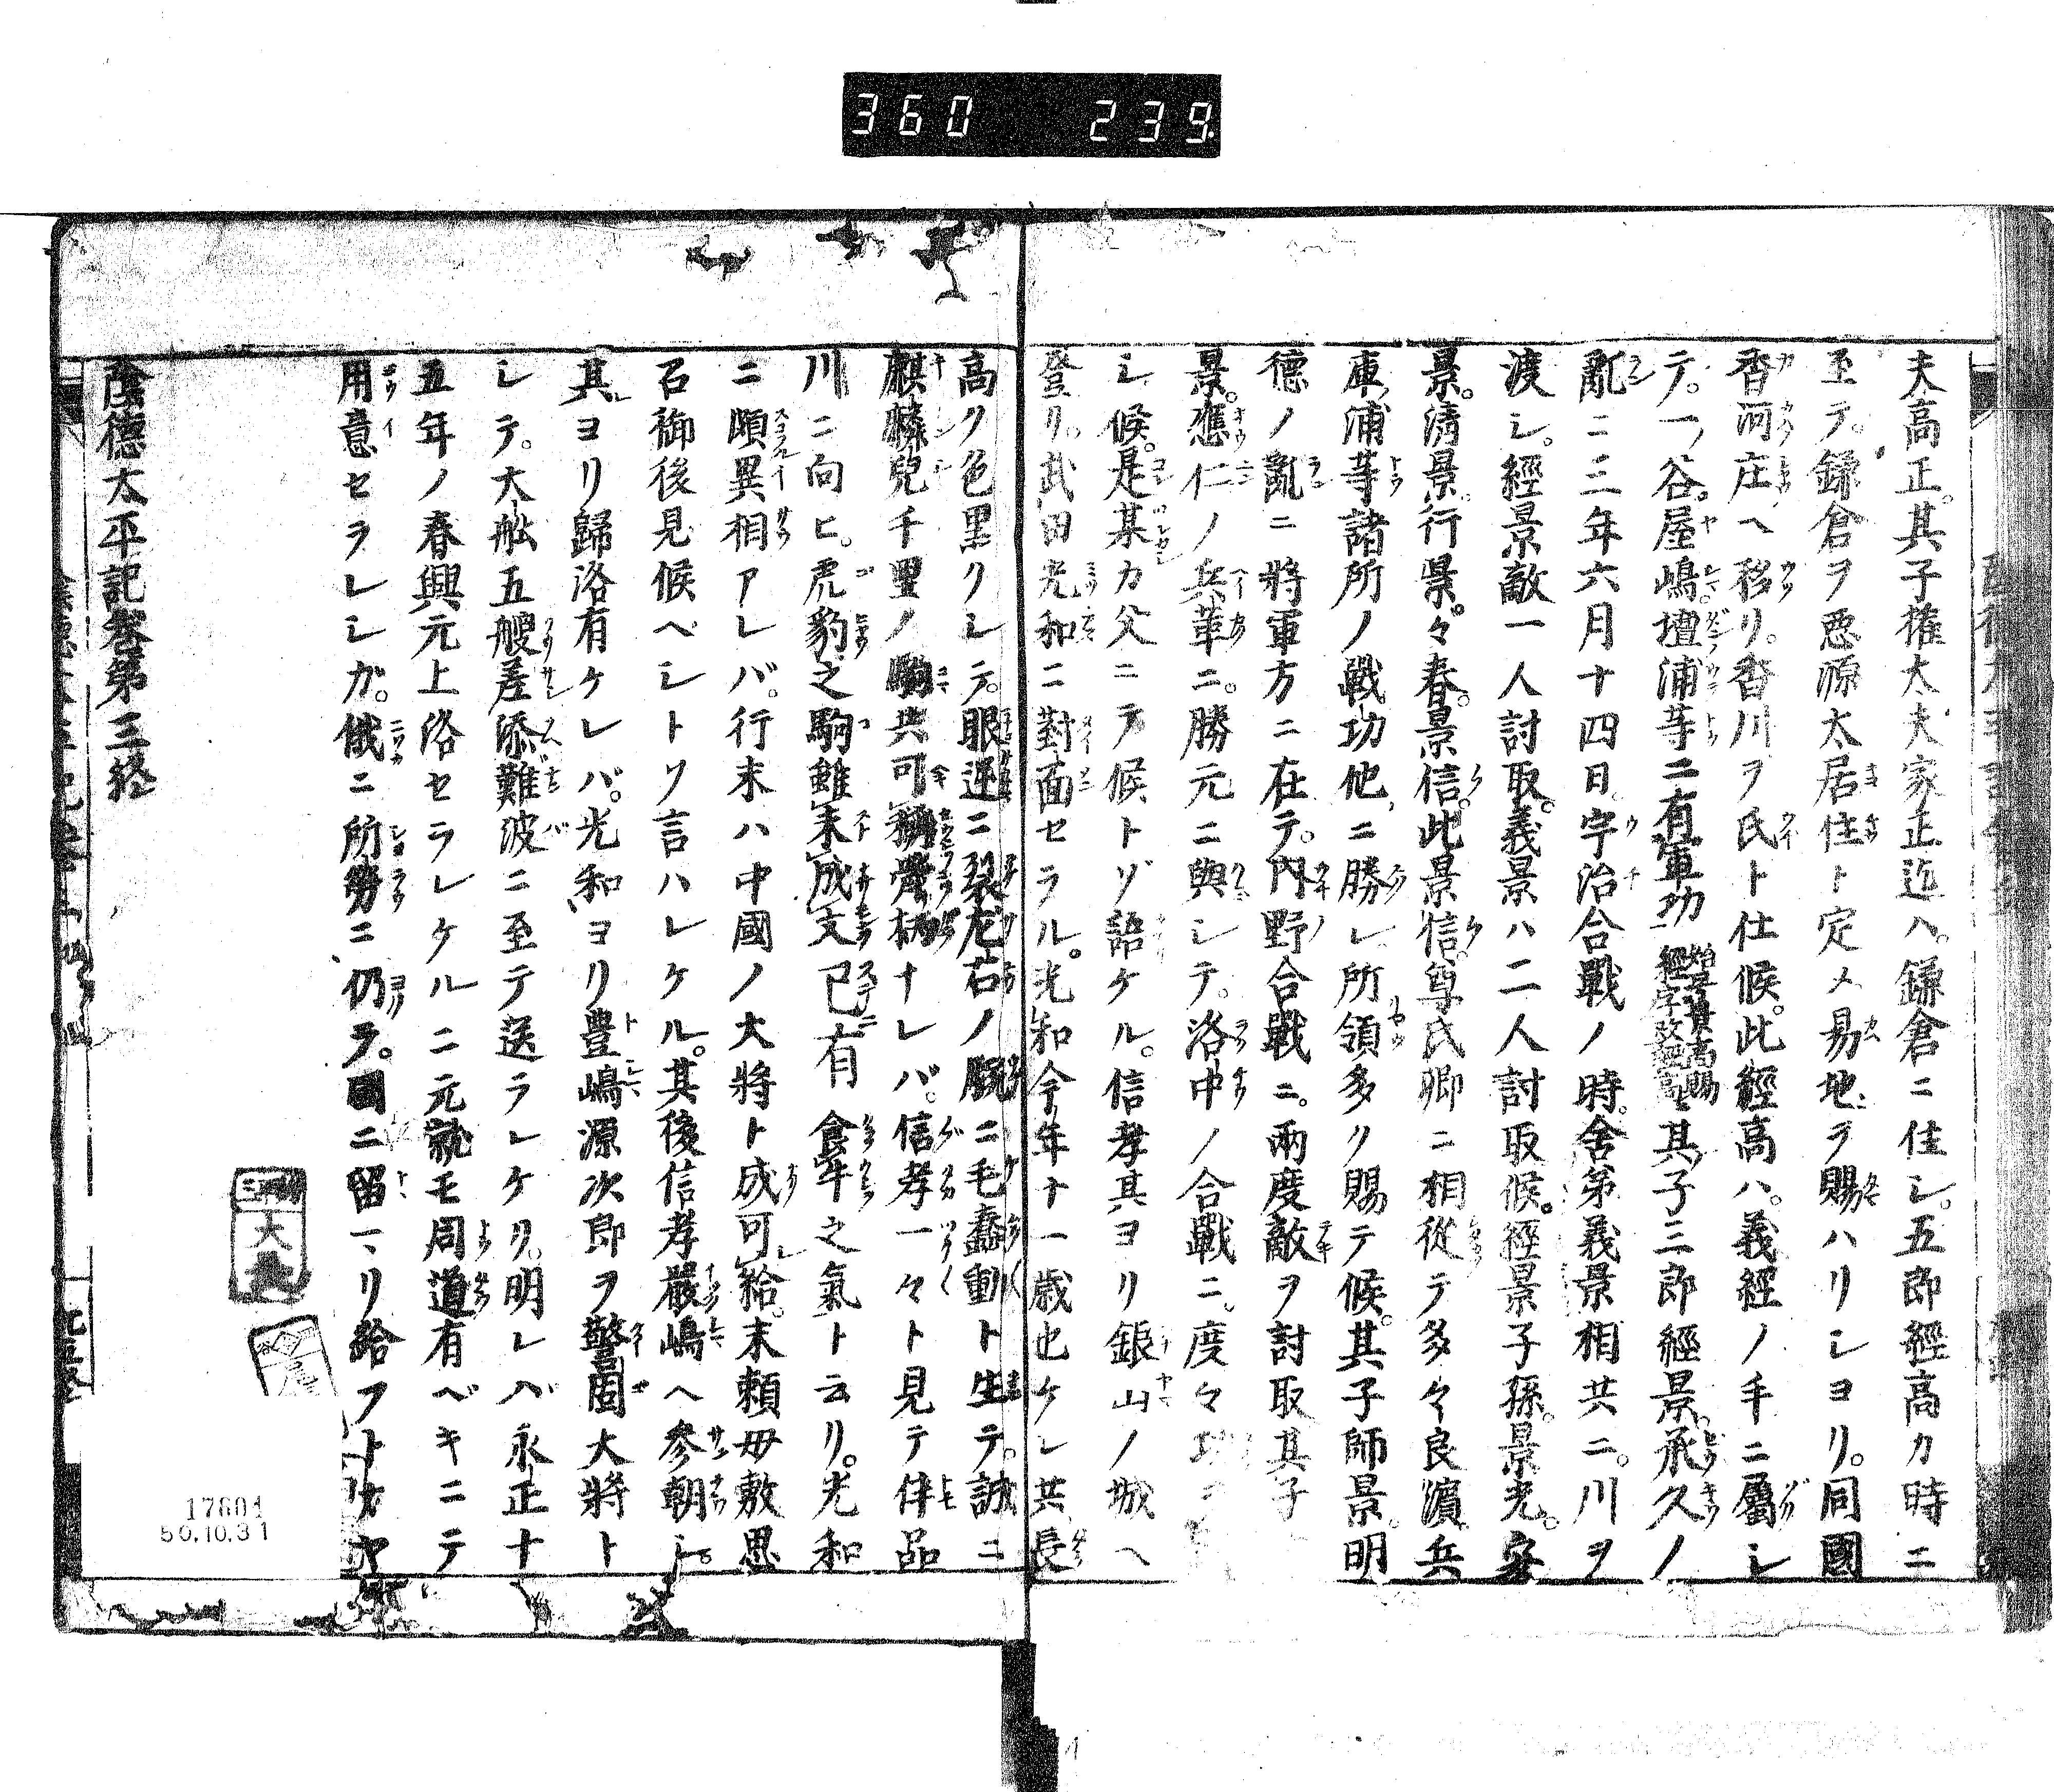 360 239
夫高正。其子権太夫家正迄ハ。鎌倉ニ住シ。五郎經高カ時ニ
至テ。鎌倉ヲ悪源太居住ト定メ易地ヲ賜ハリシヨリ。同國
香河庄ヘ移リ。香川ヲ氏ト仕候。此經高ハ。義經ノ手ニ屬シ
テ。一ノ谷。屋嶋。壇浦等ニ有軍功 其子三郎經景。承久ノ
亂ニ三年六月十四日。宇治合戰ノ時。舍弟義景相共ニ。川ヲ
渡シ。經景敵一人討取。義景ハ二人討取候。經景子孫。景光。安
景。清景。行景。々春。景信。此景信。尊氏卿ニ相從テ多々良濵。兵
庫浦等諸所ノ戰功他ニ勝レ所領多ク賜テ候。其子師景。明
德ノ亂ニ將軍方ニ在テ。内野合戰ニ。兩度敵ヲ討取其子
景。應仁ノ兵革ニ。勝元ニ與シテ。洛中ノ合戰ニ。度々功ヲ
シ候。是某カ父ニテ候トゾ語ケル。信孝其ヨリ銀山ノ城ヘ
登リ。武田光和ニ對面セラル。光和今年十一歳也ケレ共長
高ク色黒クシテ。眼逆ニ裂左右ノ腕ニ毛蠢動ト生テ。誠ニ
麒麟兒千里ノ駒共可稱骨柄ナレバ。信孝一々ト見テ伴品
川ニ向ヒ。虎豹之駒雖未成文已有食牛之氣ト云リ。光和
ニ頗異相アレバ。行末ハ中國ノ大將ト成可給。末頼母敷思
召御後見候ベシトソ言ハレケル。其後信孝嚴嶋ヘ參朝シ。
其ヨリ歸洛有ケレバ。光和ヨリ豊嶋源次郎ヲ警固大將ト
シテ。大舩五艘差添難波ニ至テ送ラレケリ。明レバ永正十
五年ノ春興元上洛セラレケルニ元就モ周道有ベキニテ
用意セラレシガ。俄ニ所勞ニ仍テ。國ニ留マリ給フト
陰德太平記卷第三終
17804
50.10.31